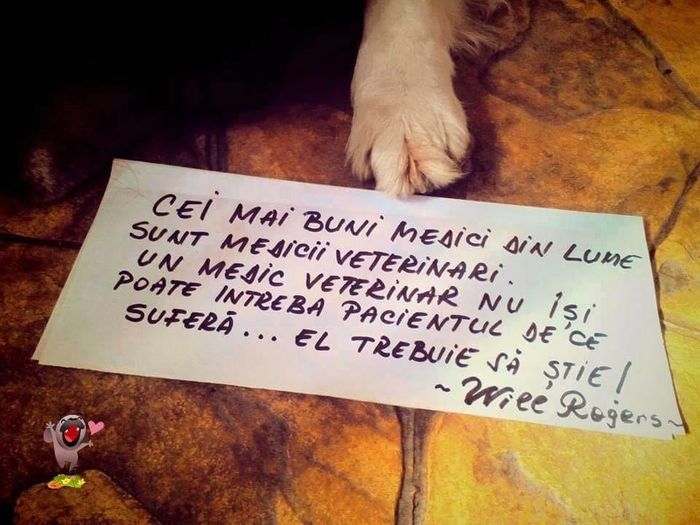 CEI MAI BUNI MEDICI DIN LUME
SUNT MEDICII VETERINARI.
UN MEDIC VETERINAR NU ÎȘI
POATE INTREBA PACIENTUL DE CE
SUFERĂ... EL TREBUIE SĂ ȘTIE!
~ Will Rogers ~